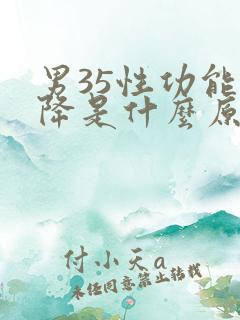 男35性功能
降是什麼原
付小天a
未经同意禁止转载